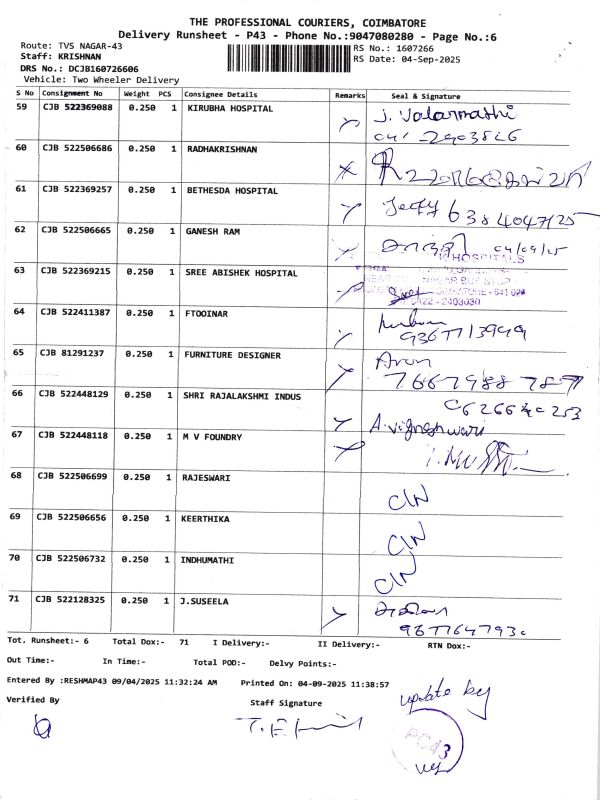 THE PROFESSIONAL COURIERS, COIMBATORE
Delivery Runsheet - P43 - Phone No.:9047080280 - Page No.:6
Route: TVS NAGAR-43
RS No.: 1607266
Staff: KRISHNAN
RS Date: 04-Sep-2025
DRS No.: DCJB160726606
Vehicle: Two Wheeler Delivery
S No Consignment No Weight PCS Consignee Details Remarks Seal & Signature
59 CJB 522369088 0.250 1 KIRUBHA HOSPITAL J. Valarmathi
0422 2903826
60 CJB 522506686 0.250 1 RADHAKRISHNAN
61 CJB 522369257 0.250 1 BETHESDA HOSPITAL 6384047125
62 CJB 522506665 0.250 1 GANESH RAM 04/09/25
HOSPITALS
63 CJB 522369215 0.250 1 SREE ABISHEK HOSPITAL
BUS STOP
0422 - 2403030
64 CJB 522411387 0.250 1 FTOOINAR
9367713949
65 CJB 81291237 0.250 1 FURNITURE DESIGNER Arun
7667988787
66 CJB 522448129 0.250 1 SHRI RAJALAKSHMI INDUS
A. Vigneshwari
67 CJB 522448118 0.250 1 M V FOUNDRY
68 CJB 522506699 0.250 1 RAJESWARI CIN
69 CJB 522506656 0.250 1 KEERTHIKA CIN
70 CJB 522506732 0.250 1 INDHUMATHI CIN
71 CJB 522128325 0.250 1 J.SUSEELA
Tot. Runsheet:- 6 Total Dox:- 71 I Delivery:- II Delivery:- RTN Dox:-
Out Time:- In Time:- Total POD:- Delvy Points:-
Entered By :RESHMAP43 09/04/2025 11:32:24 AM Printed On: 04-09-2025 11:38:57
Verified By Staff Signature update by
PC43